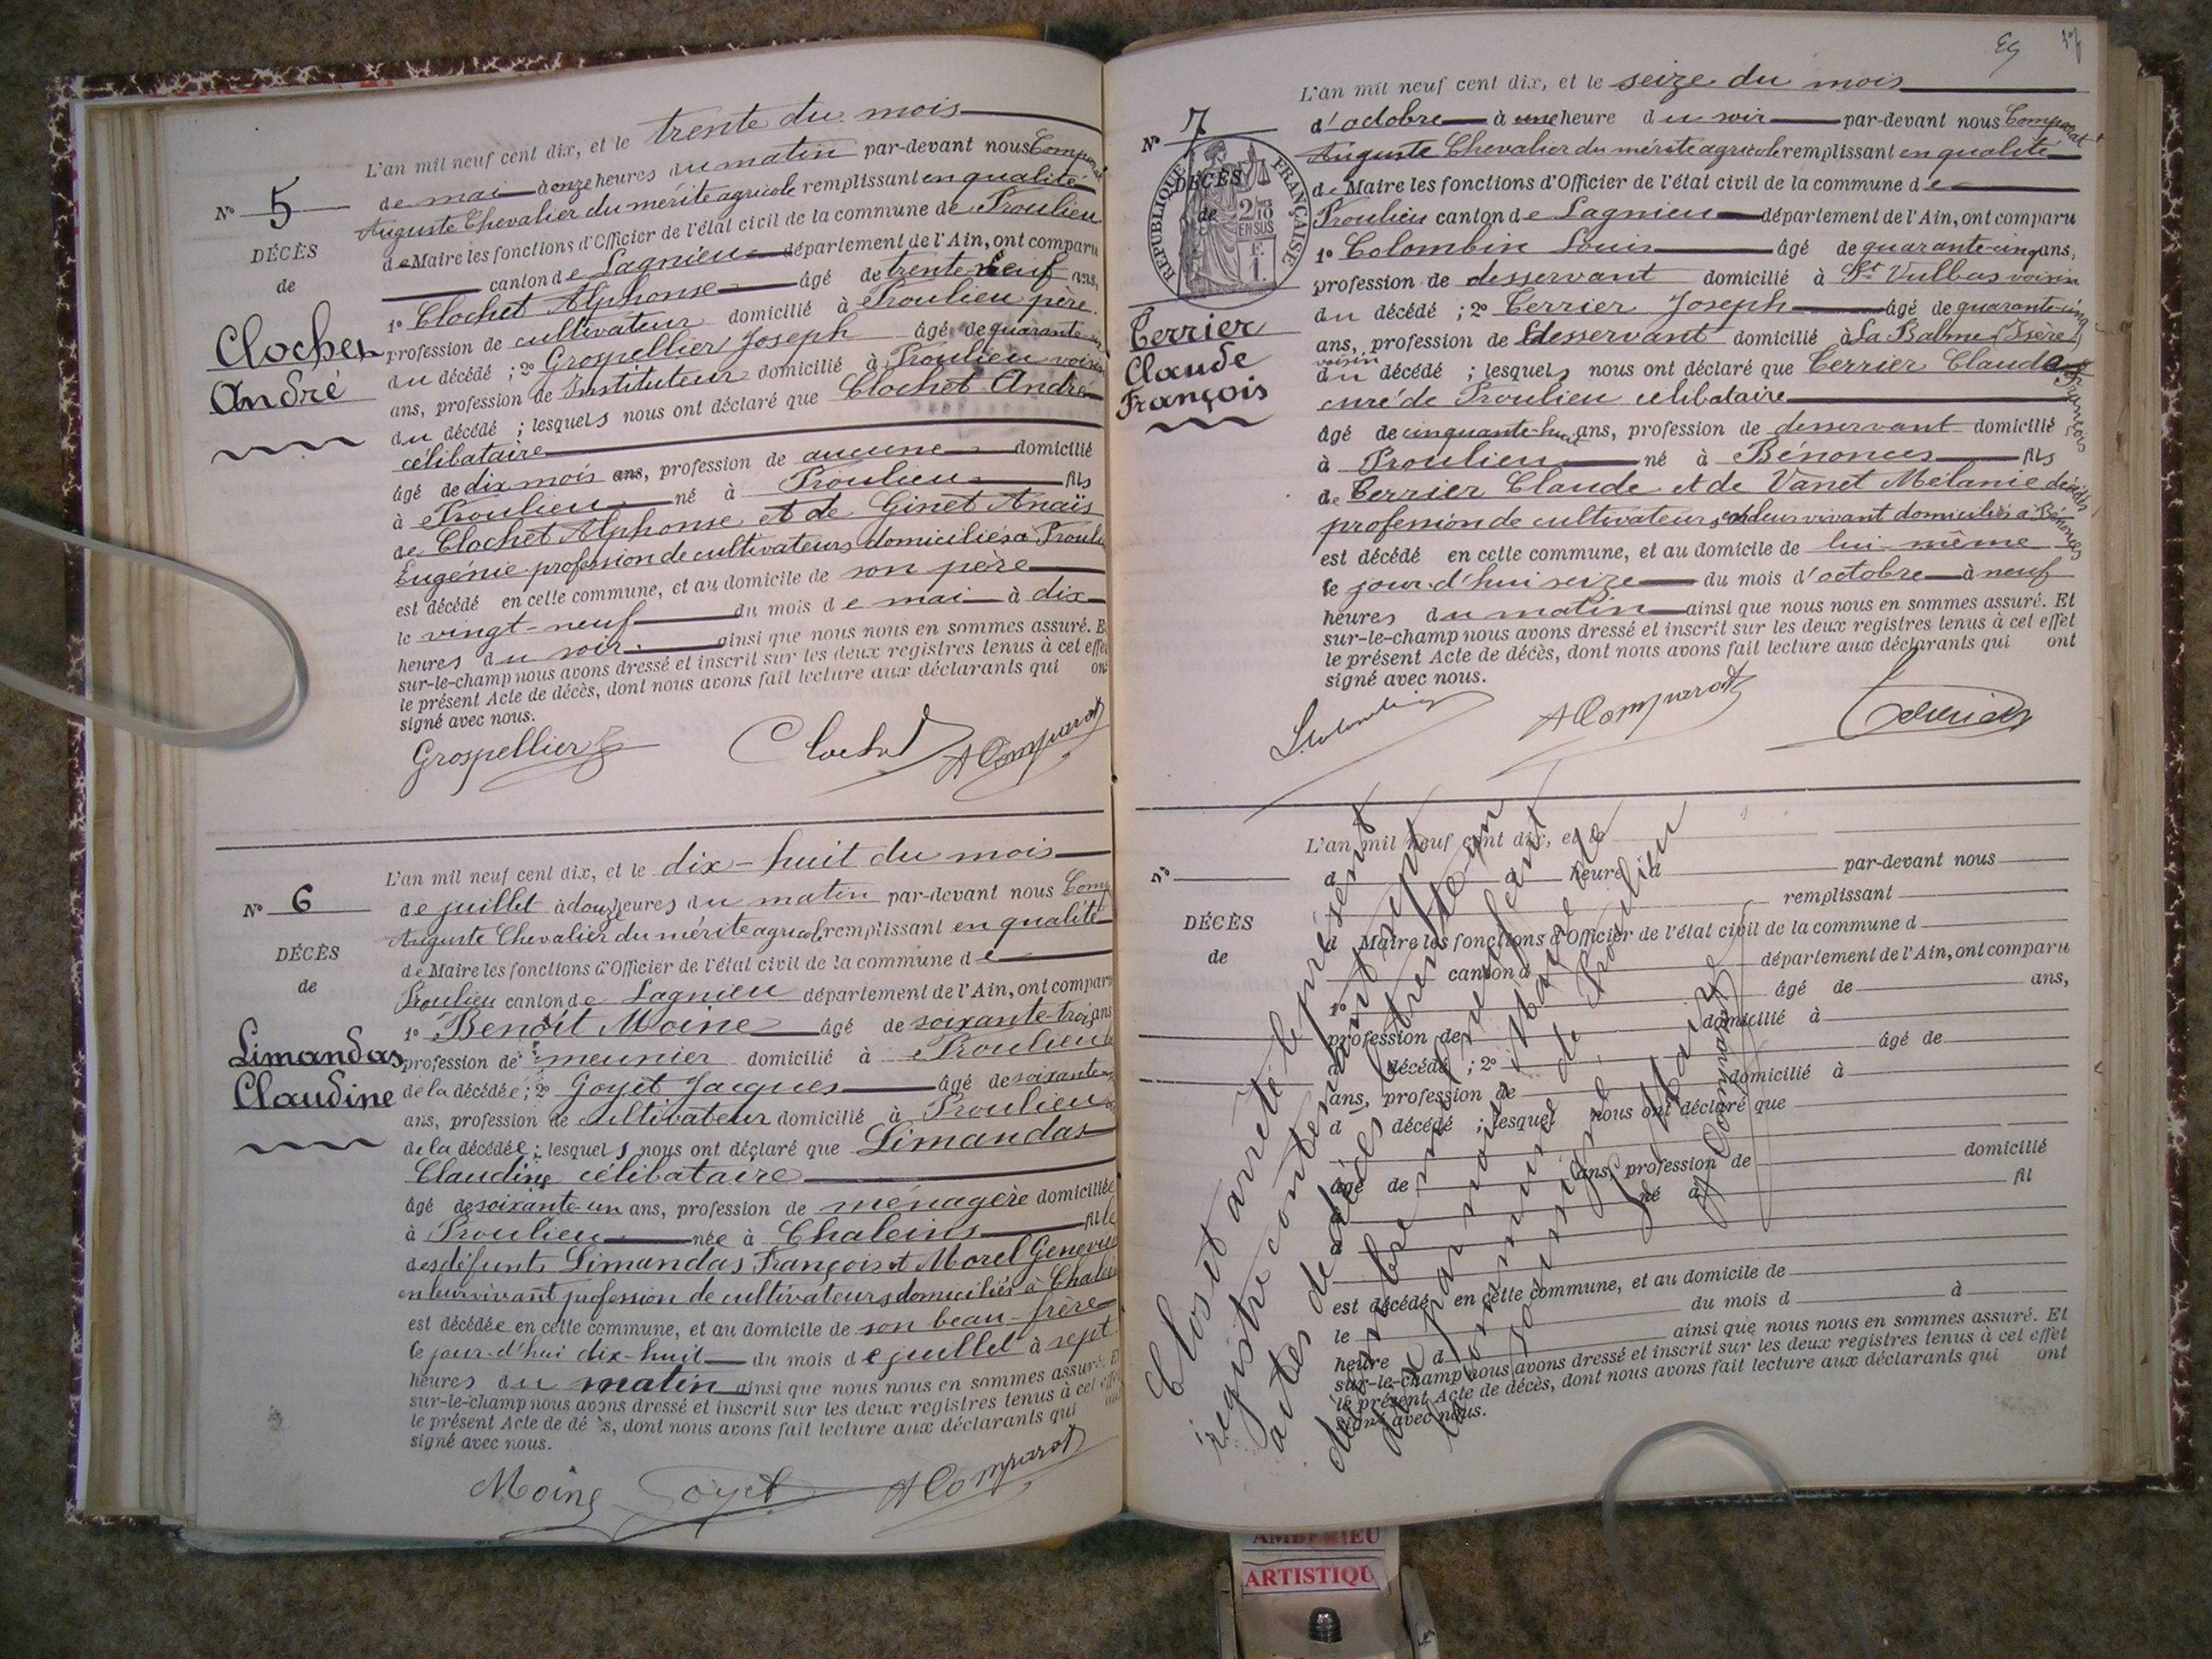 L'an mil neuf cent dix, et le trente du mois
de mai à onze heures du matin par-devant nous Comparat
Auguste Chevalier du mérite agricole remplissant en qualité
de Maire les fonctions d'Officier de l'état civil de la commune de Proulieu
canton de Lagnieu département de l'Ain, ont comparu
1° Clochet Alphonse âgé de trente neuf ans,
profession de cultivateur domicilié à Proulieu père
du décédé ; 2° Grospellier Joseph âgé de quarante
ans, profession de Instituteur domicilié à Proulieu voisin
du décédé ; lesquels nous ont déclaré que Clochet André
célibataire
âgé de dix mois ans, profession de aucune domicilié
à Proulieu né à Proulieu fils
de Clochet Alphonse et de Ginet Anaïs
Eugénie profession de cultivateurs domiciliés à Proulieu
est décédé en cette commune, et au domicile de son père
le vingt-neuf du mois de mai à dix
heures du soir ainsi que nous nous en sommes assuré. Et
sur-le-champ nous avons dressé et inscrit sur les deux registres tenus à cet effet
le présent Acte de décès, dont nous avons fait lecture aux déclarants qui ont
signé avec nous.
Grospellier Clochet A Comparat
N° 5
DÉCÈS
de
Clochet
André
L'an mil neuf cent dix, et le dix-huit du mois
de juillet à douze heures du matin par-devant nous Comp
Auguste Chevalier du mérite agricole remplissant en qualité
de Maire les fonctions d'Officier de l'état civil de la commune de
Proulieu canton de Lagnieu département de l'Ain, ont comparu
1° Benoît Moine âgé de soixante-trois ans
profession de meunier domicilié à Proulieu
de la décédée ; 2° Goyet Jacques âgé de soixante
ans, profession de cultivateur domicilié à Proulieu
de la décédée ; lesquels nous ont déclaré que Limandas
Claudine célibataire
âgé de soixante-un ans, profession de ménagère domiciliée
à Proulieu née à Chaleins fille
des défunts Limandas François et Morel Genevie
en leur vivant profession de cultivateurs domiciliés à Chalei
est décédée en cette commune, et au domicile de son beau-frère
le jour-d'hui dix-huit du mois de juillet à sept
heures du matin ainsi que nous nous en sommes assuré. Et
sur-le-champ nous avons dressé et inscrit sur les deux registres tenus à cet effet
le présent Acte de dé s, dont nous avons fait lecture aux déclarants qui ont
signé avec nous.
Moine Goyet A Comparat
N° 6
DÉCÈS
de
Limandas
Claudine
L'an mil neuf cent dix, et le seize du mois
d'octobre à une heure du soir par-devant nous Comparat
Auguste Chevalier du mérite agricole remplissant en qualité
de Maire les fonctions d'Officier de l'état civil de la commune de
Proulieu canton de Lagnieu département de l'Ain, ont comparu
1° Colombin Louis âgé de quarante-cinq ans,
profession de desservant domicilié à St Vulbas voisin
du décédé ; 2° Terrier Joseph âgé de quarante-cinq
ans, profession de desservant domicilié à La Balme (Isère)
voisin
du décédé ; lesquels nous ont déclaré que Terrier Claude François
curé de Proulieu célibataire
âgé de cinquante-huit ans, profession de desservant domicilié
à Proulieu né à Bénonces fils
de Terrier Claude et de Vanet Mélanie décédés
profession de cultivateurs, en leur vivant domiciliés à Bénonces
est décédé en cette commune, et au domicile de lui-même
le jour-d'hui seize du mois d'octobre à neuf
heures du matin ainsi que nous nous en sommes assuré. Et
sur-le-champ nous avons dressé et inscrit sur les deux registres tenus à cet effet
le présent Acte de décès, dont nous avons fait lecture aux déclarants qui ont
signé avec nous.
L. Colombin A Comparat Terrier
N° 7
DÉCÈS
de
RÉPUBLIQUE FRANÇAISE
2/10
EN SUS
F.
1.
Terrier
Claude
François
L'an mil neuf cent dix, et le
d à heure d par-devant nous
remplissant
d Maire les fonctions d'Officier de l'état civil de la commune d
canton d département de l'Ain, ont comparu
1° âgé de ans,
profession de domicilié à
d décédé ; 2° âgé de
ans, profession de domicilié à
d décédé ; lesquel nous ont déclaré que
âgé de ans, profession de domicilié
à né à fil
d
est décédé en cette commune, et au domicile de
le du mois d à
heure d ainsi que nous nous en sommes assuré. Et
sur-le-champ nous avons dressé et inscrit sur les deux registres tenus à cet effet
le présent Acte de décès, dont nous avons fait lecture aux déclarants qui ont
signé avec nous.
N°
DÉCÈS
de
Clos et arrêté le présent
registre contenant sept
actes de décès le trente-un
décembre mil neuf cent
dix par nous Maire de
la commune de Proulieu
soussigné
Le Maire
A Comparat
ARTISTIQU